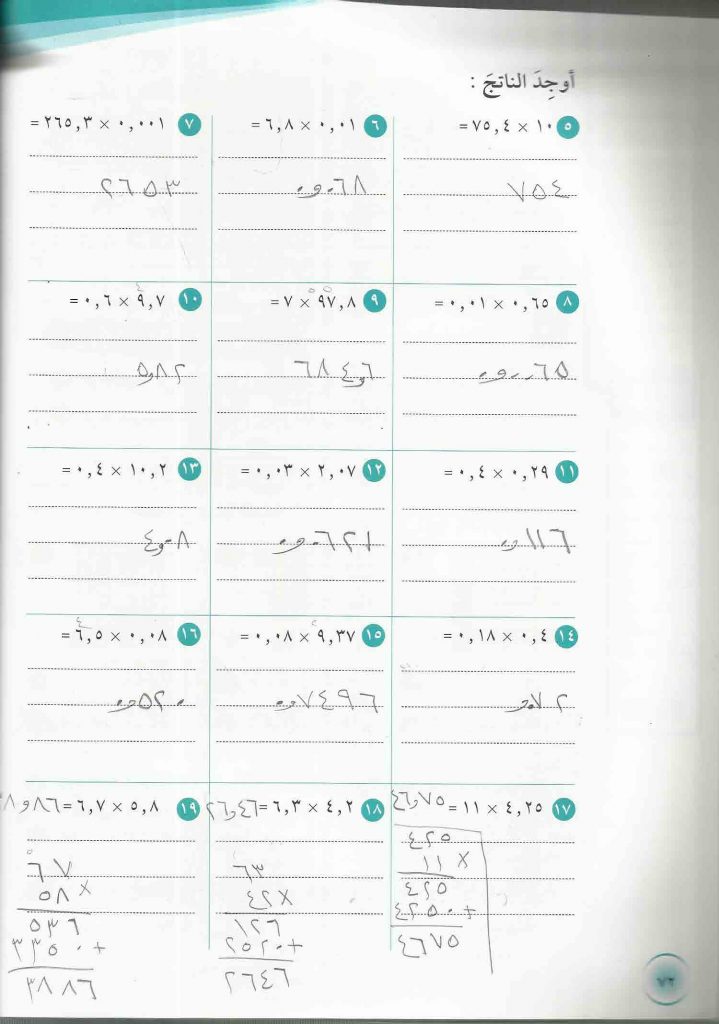 أوجِدَ الناتجَ :
٥ ١٠ × ٧٥,٤ =
٧٥٤
٦ ٠,٠١ × ٦,٨ =
٠و٠٦٨
٧ ٠,٠٠١ × ٢٦٥,٣ =
٢٦٥٣
٨ ٠,٦٥ × ٠,٠١ =
٠و٠٠٦٥
٩ ٩٧,٨ × ٧ =
٦٨٤و٦
١٠ ٩,٧ × ٠,٦ =
٥و٨٢
١١ ٠,٢٩ × ٠,٤ =
٠و١١٦
١٢ ٢,٠٧ × ٠,٠٣ =
٠و٠٦٢١
١٣ ١٠,٢ × ٠,٤ =
٤و٠٨
١٤ ٠,٤ × ٠,١٨ =
٠و٠٧٢
١٥ ٩,٣٧ × ٠,٠٨ =
٠و٧٤٩٦
١٦ ٠,٠٨ × ٦,٥ =
٠و٥٢٠
١٧ ٤,٢٥ × ١١ = ٤٦و٧٥
٤٢٥
١١ ×
٤٢٥
٤٢٥٠ +
٤٦٧٥
١٨ ٤,٢ × ٦,٣ = ٢٦و٤٦
٦٣
٤٢ ×
١٢٦
٢٥٢٠ +
٢٦٤٦
١٩ ٥,٨ × ٦,٧ = ٣٨و٨٦
٦٧
٥٨ ×
٥٣٦
٣٣٥٠ +
٣٨٨٦
٧٢